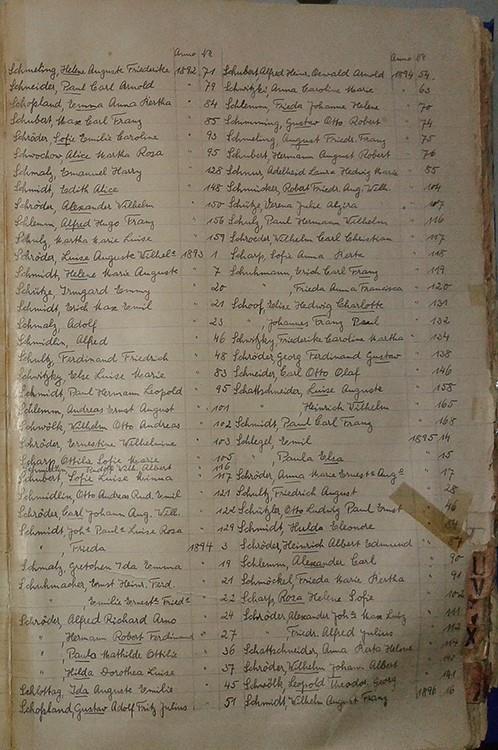 Anno №
Schmeling, Helene Auguste Friederike 1892 71
Schneider, Paul Carl Arnold " 79
Schopland, Emma Anna Bertha " 84
Schubert, Max Carl Franz " 85
Schröder, Sofie Emilie Caroline " 93
Schwochow, Alice Martha Rosa " 95
Schmalz, Emanuel Harry " 128
Schmidt, Edith Alice " 148
Schröder, Alexander Wilhelm " 150
Schlemm, Alfred Hugo Franz " 156
Schulz, Martha Marie Luise " 159
Schröder, Luise Auguste Wilhel 1893 1
Schmidt, Helene Marie Auguste " 7
Schütze, Irmgard Emmy " 20
Schmidt, Erich Max Emil " 21
Schmalz, Adolf " 23
Schmidlin, Alfred " 46
Schultz, Ferdinand Friedrich " 48
Schwitzky, Else Luise Marie " 83
Schmidt, Paul Hermann Leopold " 95
Schlemm, Andreas Ernst August " 101
Schwölk, Wilhelm Otto Andreas " 102
Schröder, Ernestine Wilhelmine " 103
Scharp, Ottilie Sofie Marie " 105
Rudolf Wilh. Albert 116
Schubert, Sofie Luise Minna " 117
Schmidlin, Otto Andreas Rud. Emil " 121
Schröder, Carl Johann Aug. Wilh. " 122
Schmidt, Joh Paul Luise Rosa " 129
" , Frieda 1894 3
Schmalz, Gretchen Ida Emma " 19
Schuhmacher, Ernst Heinr. Ferd. " 21
" Emilie Ernest Fried " 22
Schröder, Alfred Richard Arno " 24
" Hermann Robert Ferdinand " 27
" , Paula Mathilde Ottilie " 36
" , Hilda Dorothea Luise " 37
Schlottag, Ida Auguste Emilie " 45
Schopland, Gustav Adolf Fritz Julius " 51
Anno №
Schubert, Alfred Heinr. Oswald Arnold 1894 54
Schwitzky, Anna Caroline Marie " 63
Schlemm, Frieda Johanne Helene " 70
Schumming, Gustav Otto Robert " 74
Schmeling, August Friedr. Franz " 75
Schubert, Hermann August Robert " 76
Schnur, Adelheid Luise Hedwig Marie " 85
Schmücker, Robert Friedr. Aug. Wilh. " 104
Schütze, Verena Julie Alzira " 107
Schulz, Paul Hermann Wilhelm " 116
Schröder Wilhelm Carl Christian " 117
Scharp, Sofie Anna Berta " 118
Schuhmann, Erich Carl Franz " 119
" Frieda Anna Francisca " 120
Schoof, Elise Hedwig Charlotte " 131
" , Johannes Franz Paul " 132
Schwitzky, Friederike Caroline Martha " 134
Schröder Georg Ferdinand Gustav " 138
Schneider, Carl Otto Olaf " 146
Schattschneider, Luise Auguste " 158
" Heinrich Wilhelm " 165
Schmidt, Paul Carl Franz " 168
Schlegel, Emil 1895 14
" , Paula Elea " 15
Schröder, Anna Marie Ernest Aug " 17
Schultz, Friedrich August " 28
Schützler, Otto Ludwig Paul Ernst " 46
Schmidt Hulda Eleonore
Schröder, Heinrich Albert Edmund
Schlemm, Alexander Carl " 90
Schmökel, Frieda Marie Bertha " 91
Scharp, Rosa Helene Sofie " 102
Schröder Alexander Joh Max Luiz " 111
" , Friedr. Alfred Julius " 112
Schattschneider, Anna Berta Helene " 114
Schröder, Wilhelm Johann Albert "
Schwölk, Leopold Theodor Georg "
Schmidt Wilhelm August Franz 1896 16
U V
X